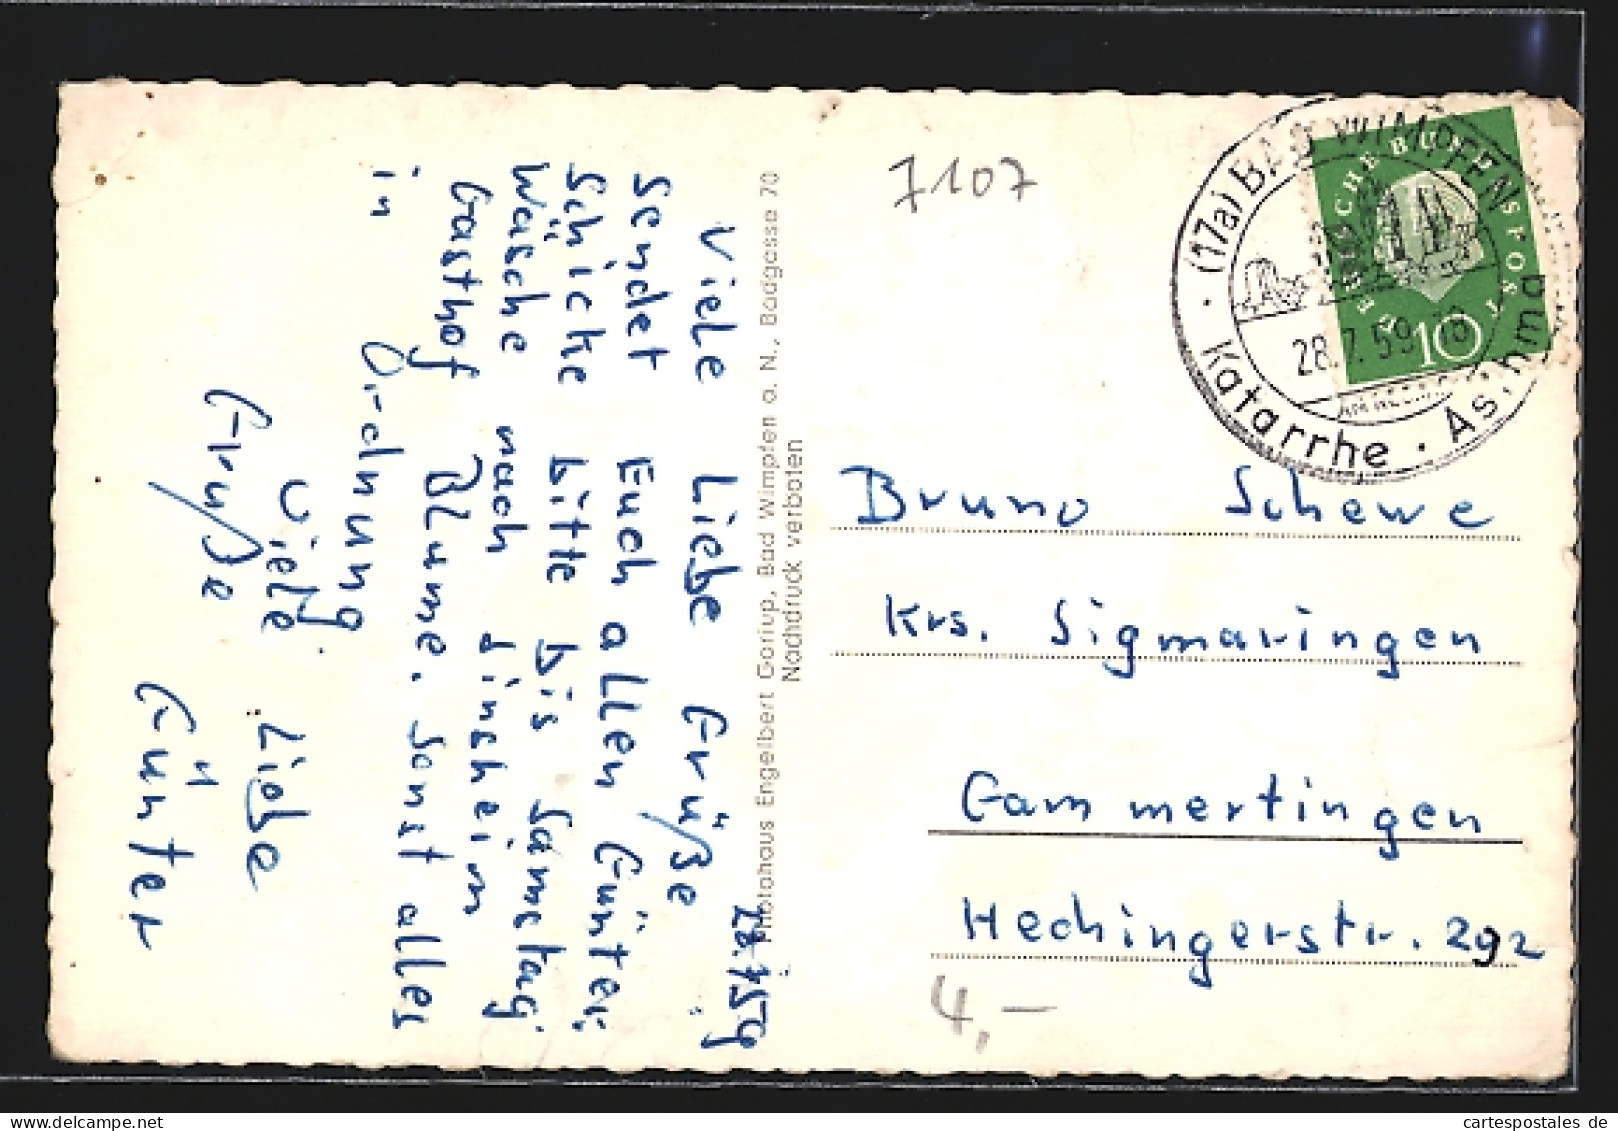 28.7.59
Viele Liebe Grüße
sendet Euch allen Günter,
Schicke bitte bis Samstag
Wäsche nach Sinsheim
Gasthof Blume. Sonst alles
in Ordnung.
Viele Liebe
Grüße
Günter
Photohaus Engelbert Goriup, Bad Wimpfen a. N., Badgasse 70
Nachdruck verboten
7107
(17a) BAD WIMPFEN
28.7.59
AM NECKAR
Katarrhe · Asthma
DEUTSCHE BUNDESPOST
10
Bruno Schewe
Krs. Sigmaringen
Gammertingen
Hechingerstr. 292
4,-
cartespostales de